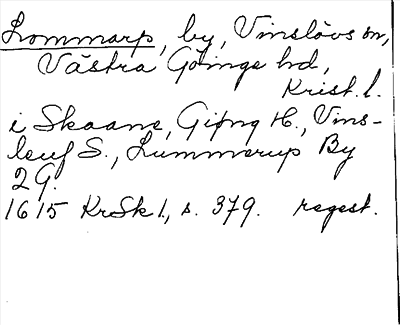 Lommarp, by, Vinslövs sn,
Västra Göinge hd,
Krist. l.
i Skaane, Giøng H., Vins-
leuf S., Lummerup By
2 G.
1615 KrSk 1, s. 379. regest.